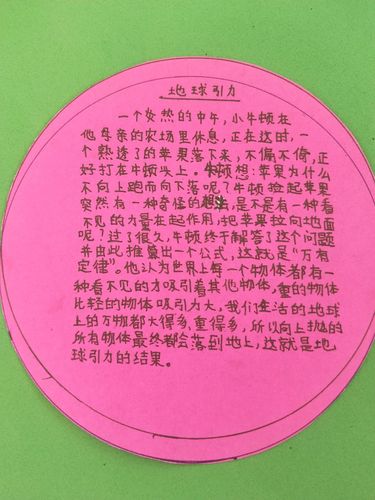 地球引力
一个炎热的中午，小牛顿在
他母亲的农场里休息，正在这时，一
个熟透了的苹果落下来，不偏不倚，正
好打在牛顿头上。牛顿想：苹果为什么
不向上跑而向下落呢？牛顿捡起苹果
突然有一种奇怪的想法，是不是有一种看
不见的力量在起作用，把苹果拉向地面
呢？过了很久，牛顿终于解答了这个问题
并由此推算出一个公式，这就是“万有
定律”。他认为世界上每一个物体都有一
种看不见的力吸引着其他物体，重的物体
比轻的物体吸引力大，我们生活的地球
上的万物都大得多、重得多，所以向上抛的
所有物体最终都会落到地上，这就是地
球引力的结果。